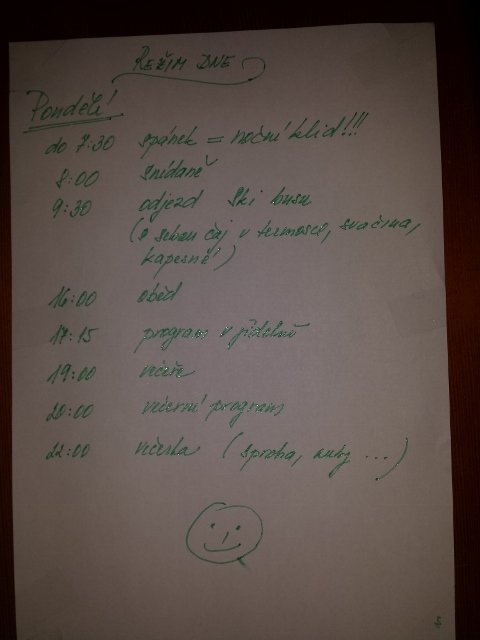 REŽIM DNE
Pondělí
do 7:30 spánek = noční klid!!!
8:00 snídaně
9:30 odjezd Ski busu
(s sebou čaj v termosce, svačina,
kapesné!)
16:00 oběd
17:15 program v jídelně
19:00 večeře
20:00 večerní program
22:00 večerka (sprcha, zuby ...)